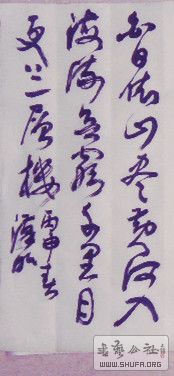 白日依山尽黄河入
海流欲窮千里目
更上一層樓 丙申春
書藝公社
WWW.SHUFA.ORG